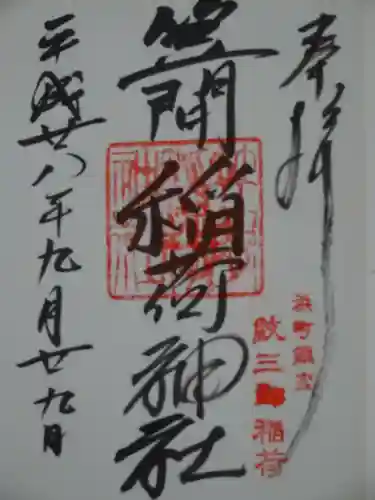 奉拝
浜町鎮守
三郎稲荷
笠間稲荷神社
平成廿八年九月廿九日